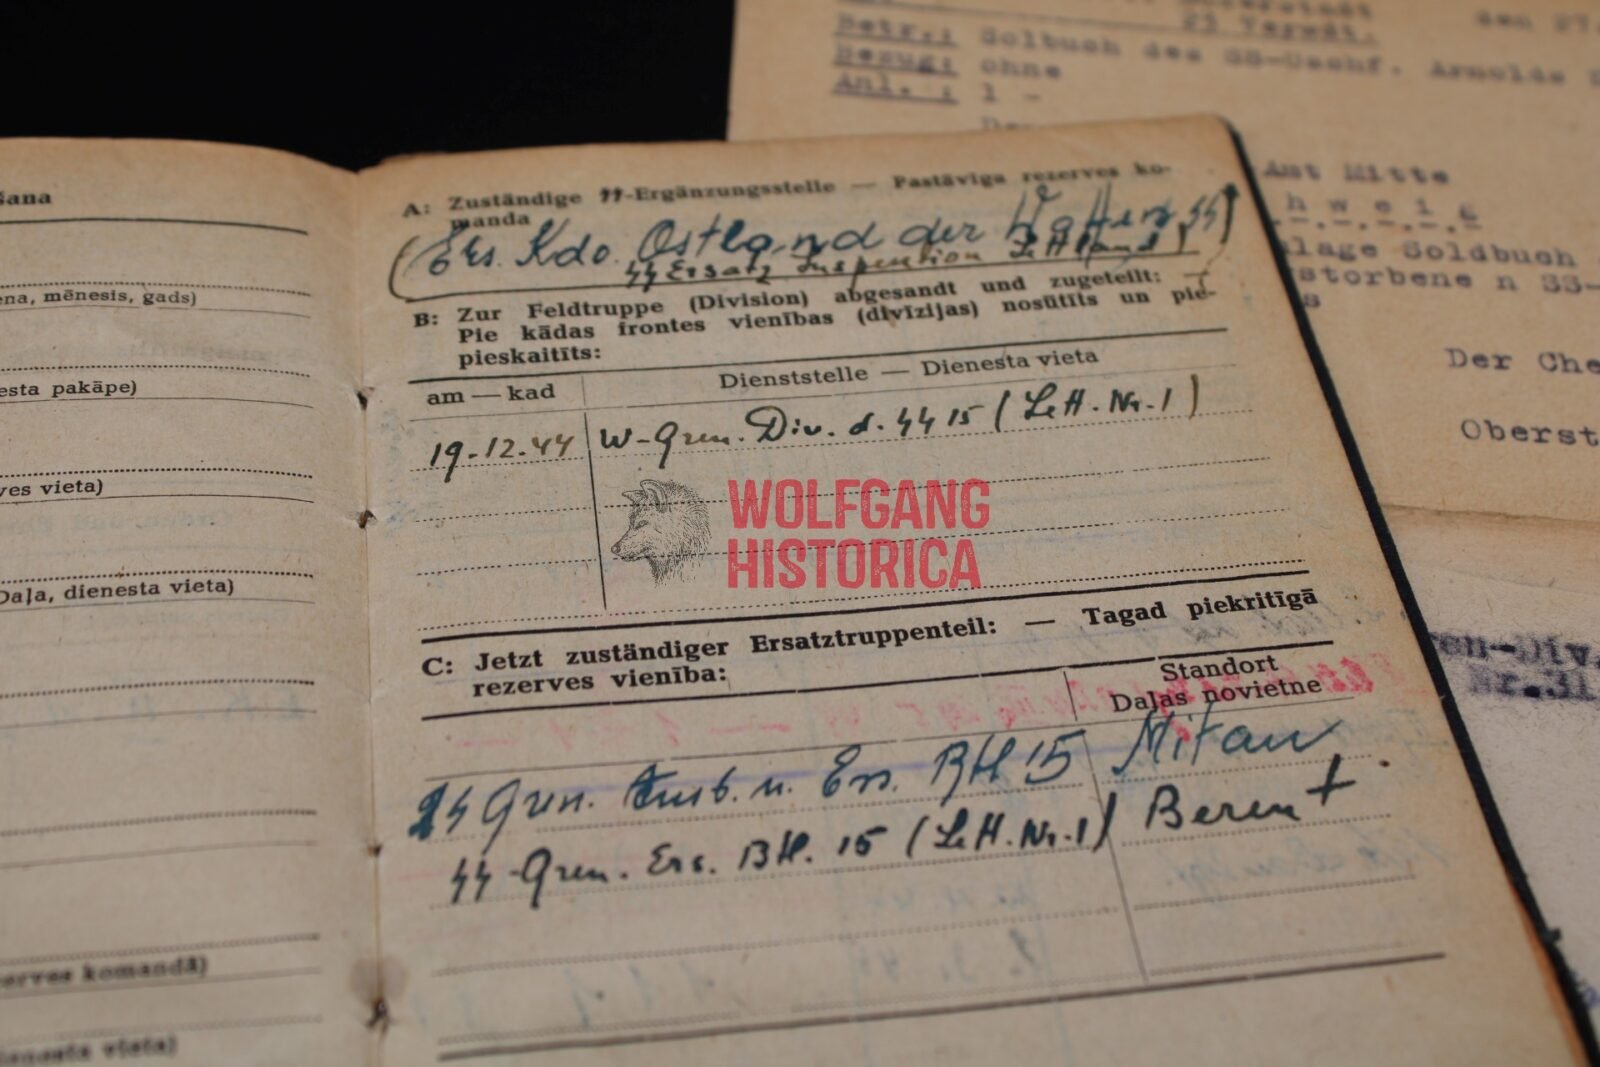 šana
ena, mēnesis, gads)
esta pakāpe)
ves vieta)
Daļa, dienesta vieta)
erves komandā)
ienesta vieta)
A: Zuständige ᛋᛋ-Ergänzungsstelle — Pastāvīga rezerves ko-
manda
(Ers. Kdo. Ostland der Waffen ᛋᛋ)
ᛋᛋ Ersatz Inspektion Lettland
B: Zur Feldtruppe (Division) abgesandt und zugeteilt: —
Pie kādas frontes vienības (divīzijas) nosūtīts un pie-
pieskaitīts:
am — kad
Dienststelle — Dienesta vieta
19.12.44 W-Gren. Div. d. ᛋᛋ 15 (Lett. Nr. 1)
WOLFGANG
HISTORICA
C: Jetzt zuständiger Ersatztruppenteil: — Tagad piekritīgā
rezerves vienība:
Standort
Daļas novietne
Gren. Ausb. u. Ers. Btl 15 Mitau
ᛋᛋ-Gren. Ers. Btl. 15 (Lett. Nr. 1) Berent
den 27.
Betr.: Solbuch des SS-Uschf. Arnolds
Bezug: ohne
Anl. : 1 -
Amt Mitte
h w e i g
lage Soldbuch
storbene n SS-
s
Der Che
Oberst
en-Div.
Nr. 31